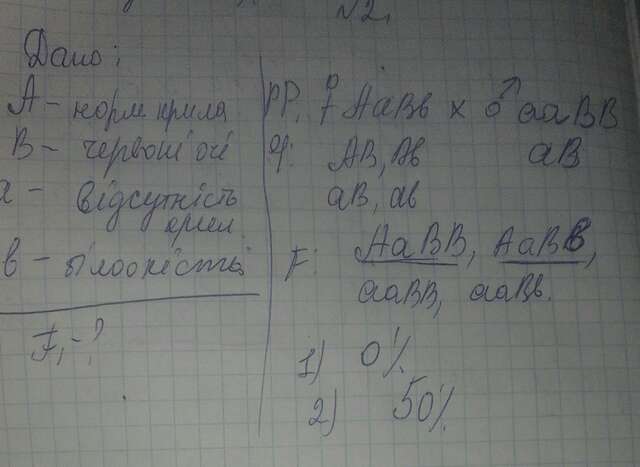 №2.
Дано:
A - норм крила
B - червоні очі
a - відсутність
крил
в - білоокість
F₁ - ?
PP: ♀ AaBb x ♂ aaBB
g: AB, Ab aB
aB, ab
F: AaBB, AaBb,
aaBB, aaBb.
1) 0%
2) 50%